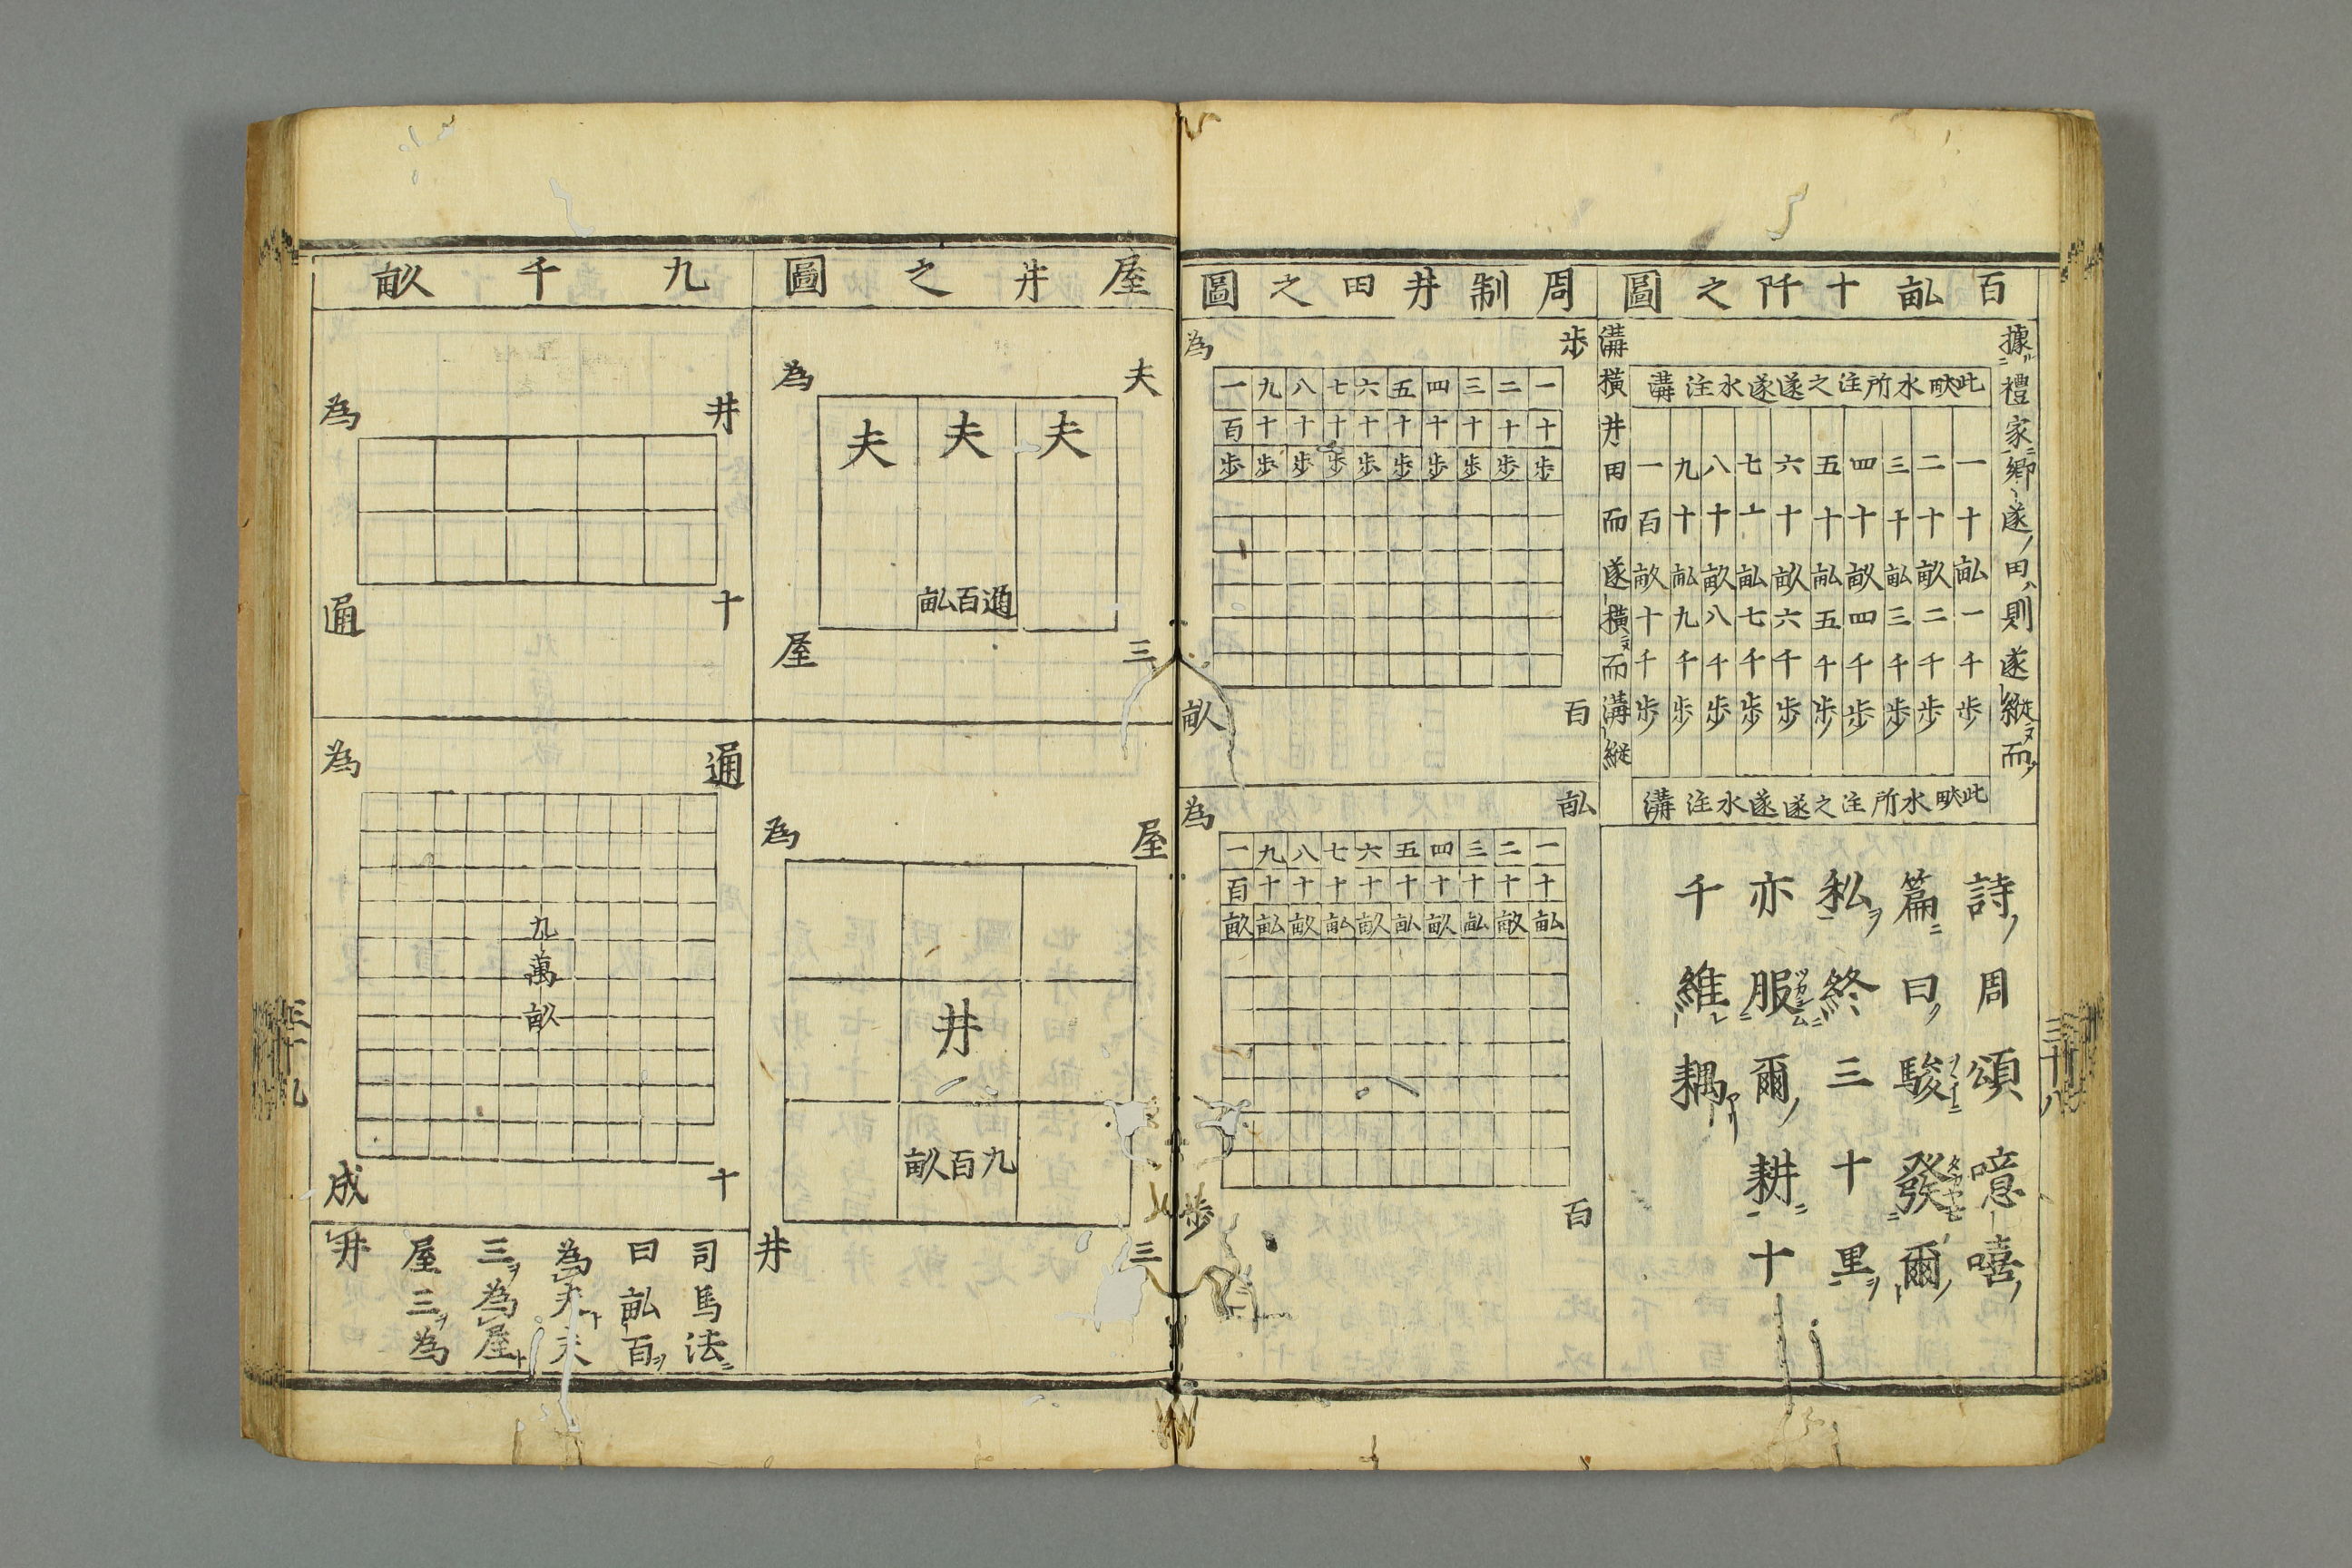 百畝十阡之圖
據禮家鄉遂田則遂縱而
溝橫井田而遂橫而溝縱
此畎水所注之遂遂水注溝
一十畝一千步
二十畝二千步
三十畝三千步
四十畝四千步
五十畝五千步
六十畝六千步
七十畝七千步
八十畝八千步
九十畝九千步
一百畝十千步
此畎水所注之遂遂水注溝
詩周頌噫嘻
篇曰駿發爾
私終三十里
亦服爾耕十
千維耦
周制井田之圖
步百為畝
一十步
二十步
三十步
四十步
五十步
六十步
七十步
八十步
九十步
一百步
畝百為步
一十畝
二十畝
三十畝
四十畝
五十畝
六十畝
七十畝
八十畝
九十畝
一百畝
三十八
屋井之圖
夫三為屋
夫
夫
夫
通百畝
屋三為井
井
九百畝
九千畝
井十為通
通十為成
九萬畝
司馬法
曰畝百
為夫夫
三為屋
屋三為
井
三十九